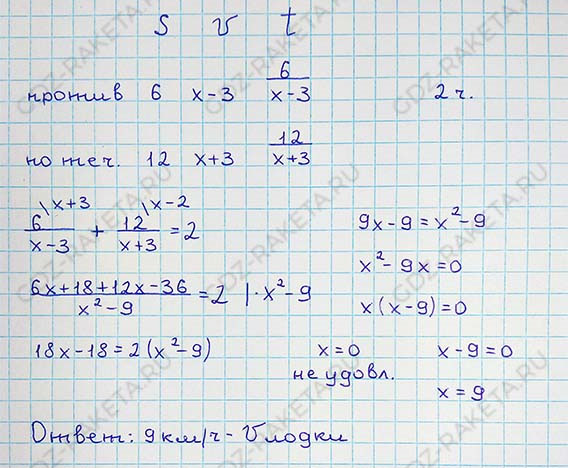 S V t
против 6 x-3 6/(x-3) 2 ч.
по теч. 12 x+3 12/(x+3)
6\x+3/(x-3) + 12\x-2/(x+3) = 2
(6x+18+12x-36)/(x²-9) = 2 |·x²-9
18x-18=2(x²-9)
9x-9=x²-9
x²-9x=0
x(x-9)=0
x=0 x-9=0
не удовл.
x=9
Ответ: 9 км/ч - V лодки
GDZ-RAKETA.RU